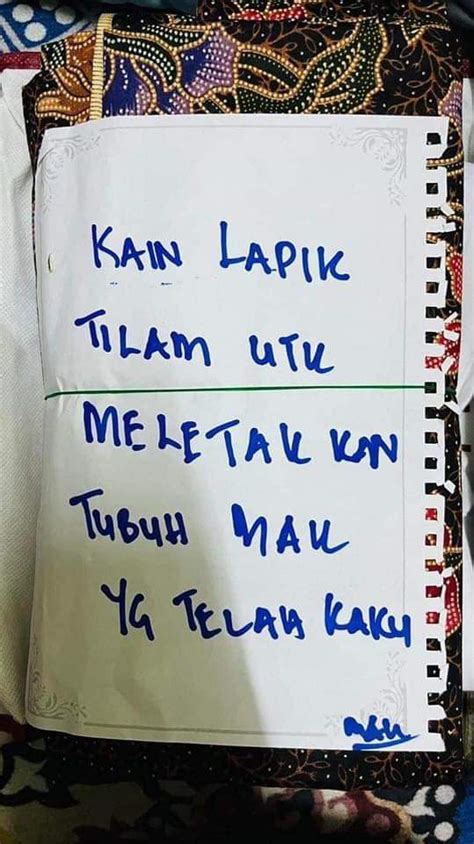 KAIN LAPIK
TILAM UTK
MELETAKKAN
TUBUH MAK
YG TELAH KAKU
MAK